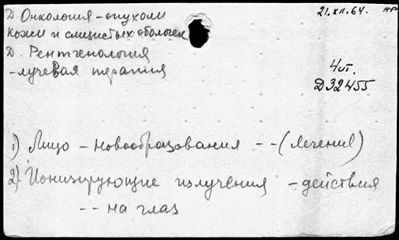 Д Онкология - опухоли
кожи и слизистых оболочек
Д. Рентгенология
- лучевая терапия
21.XII.64.
4п.
Д32455
1) Лицо - новообразования - - (лечение)
2) Ионизирующие излучения - действия
- - на глаз